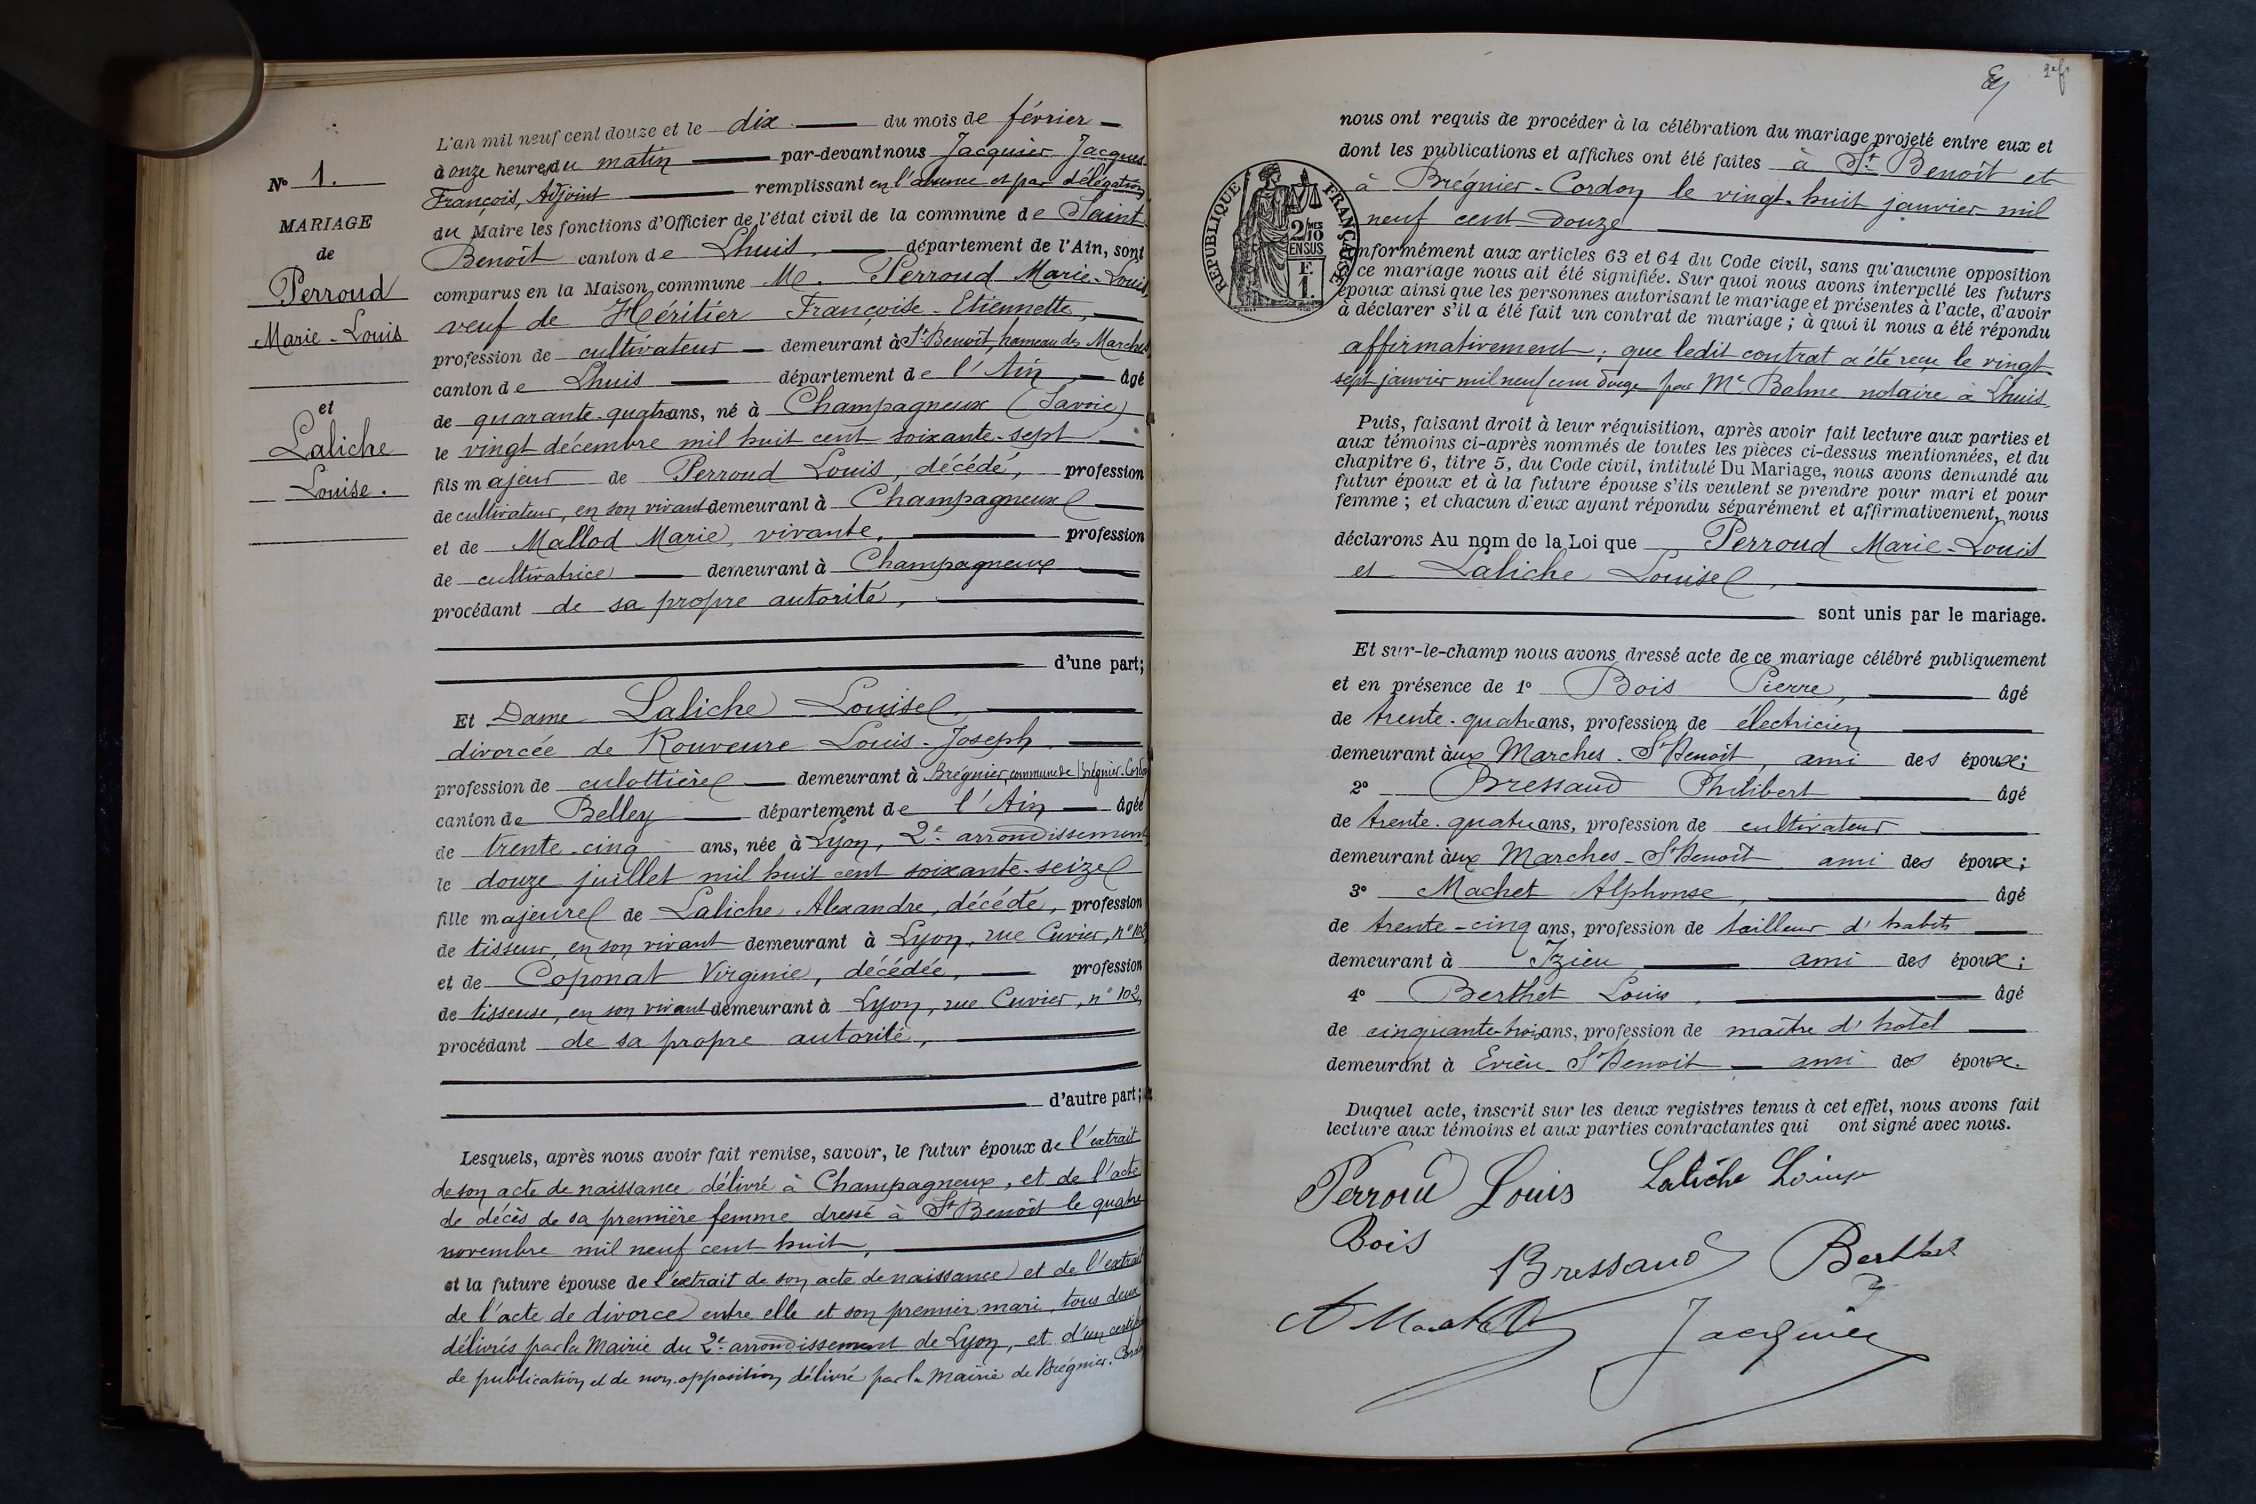 N° 1.
MARIAGE
de
Perroud
Marie-Louis
et
Laliche
Louise.
L'an mil neuf cent douze et le dix du mois de février
à onze heures du matin par-devant nous Jacquier Jacques
François, Adjoint remplissant en l'absence et par délégation
du Maire les fonctions d'Officier de l'état civil de la commune de Saint
Benoît canton de Lhuis, département de l'Ain, sont
comparus en la Maison commune M. Perroud Marie-Louis,
veuf de Héritier Françoise-Etiennette,
profession de cultivateur demeurant à St Benoît, hameau des Marches
canton de Lhuis département de l'Ain âgé
de quarante-quatre ans, né à Champagneux (Savoie)
le vingt décembre mil huit cent soixante-sept
fils majeur de Perroud Louis, décédé, profession
de cultivateur, en son vivant demeurant à Champagneux
et de Mallod Marie, vivante, profession
de cultivatrice demeurant à Champagneux
procédant de sa propre autorité,
d'une part;
Et Dame Laliche Louise
divorcée de Rouveure Louis-Joseph
profession de culottière demeurant à Brégnier, commune de Brégnier-Cordon
canton de Belley département de l'Ain âgée
de trente-cinq ans, née à Lyon, 2e arrondissement
le douze juillet mil huit cent soixante-seize
fille majeure de Laliche Alexandre, décédé, profession
de tisseur, en son vivant demeurant à Lyon, rue Cuvier, n° 102
et de Coponat Virginie, décédée, profession
de tisseuse, en son vivant demeurant à Lyon, rue Cuvier, n° 102,
procédant de sa propre autorité,
d'autre part;
Lesquels, après nous avoir fait remise, savoir, le futur époux de l'extrait
de son acte de naissance délivré à Champagneux, et de l'acte
de décès de sa première femme dressé à St Benoît le quatre
novembre mil neuf cent huit,
et la future épouse de l'extrait de son acte de naissance et de l'extrait
de l'acte de divorce entre elle et son premier mari, tous deux
délivrés par la Mairie du 2e arrondissement de Lyon, et d'un certificat
de publication et de non-opposition délivré par la Mairie de Brégnier-Cordon
nous ont requis de procéder à la célébration du mariage projeté entre eux et
dont les publications et affiches ont été faites à St Benoît et
à Brégnier-Cordon le vingt-huit janvier mil
neuf cent douze
RÉPUBLIQUE FRANÇAISE
2/10 MES
EN SUS
F.
1.
onformément aux articles 63 et 64 du Code civil, sans qu'aucune opposition
ce mariage nous ait été signifiée. Sur quoi nous avons interpellé les futurs
époux ainsi que les personnes autorisant le mariage et présentes à l'acte, d'avoir
à déclarer s'il a été fait un contrat de mariage; à quoi il nous a été répondu
affirmativement; que ledit contrat a été reçu le vingt-
sept janvier mil neuf cent douze par Me Balme notaire à Lhuis.
Puis, faisant droit à leur réquisition, après avoir fait lecture aux parties et
aux témoins ci-après nommés de toutes les pièces ci-dessus mentionnées, et du
chapitre 6, titre 5, du Code civil, intitulé Du Mariage, nous avons demandé au
futur époux et à la future épouse s'ils veulent se prendre pour mari et pour
femme; et chacun d'eux ayant répondu séparément et affirmativement, nous
déclarons Au nom de la Loi que Perroud Marie-Louis
et Laliche Louise,
sont unis par le mariage.
Et sur-le-champ nous avons dressé acte de ce mariage célébré publiquement
et en présence de 1° Bois Pierre, âgé
de trente-quatre ans, profession de électricien
demeurant aux Marches-St Benoît, ami des époux;
2° Bressaud Philibert âgé
de trente-quatre ans, profession de cultivateur
demeurant aux Marches-St Benoît ami des époux;
3° Machet Alphonse, âgé
de trente-cinq ans, profession de tailleur d'habits
demeurant à Izieu ami des époux;
4° Berthet Louis, âgé
de cinquante-trois ans, profession de maître d'hôtel
demeurant à Evieu-St Benoît ami des époux.
Duquel acte, inscrit sur les deux registres tenus à cet effet, nous avons fait
lecture aux témoins et aux parties contractantes qui ont signé avec nous.
Perroud Louis Laliche Louise
Bois
Bressaud Berthet
A Machet
Jacquier